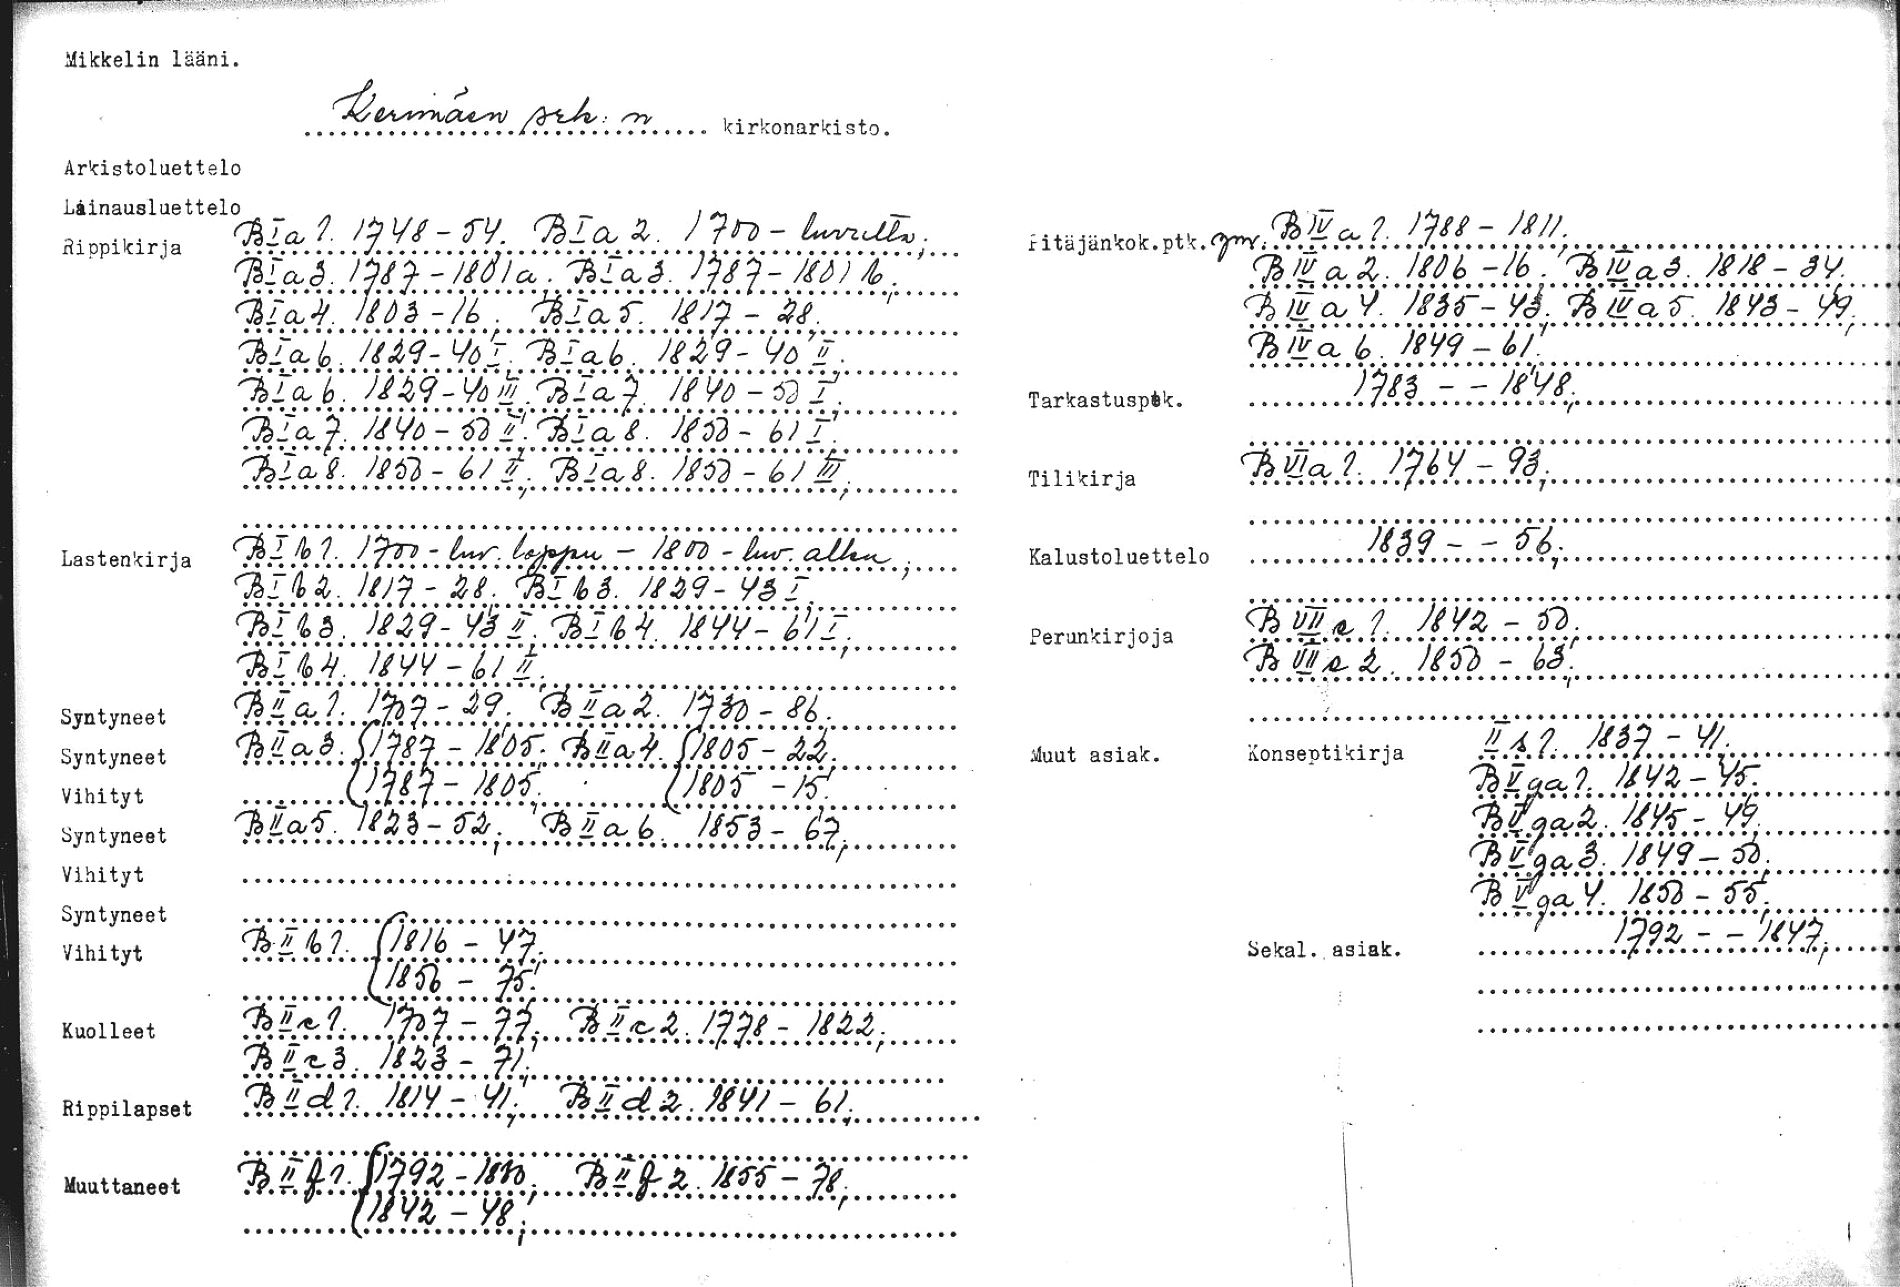 Mikkelin lääni.
Kerimäen srk:n kirkonarkisto.
Arkistoluettelo
Lainausluettelo
Rippikirja BIa1. 1748-54. BIa2. 1700-luvulta;
BIa3. 1787-1801a. BIa3. 1787-1801b;
BIa4. 1803-16; BIa5. 1817-28;
BIa6. 1829-40 I; BIa6. 1829-40 II;
BIa6. 1829-40 III; BIa7. 1840-50 I;
BIa7. 1840-50 II; BIa8. 1850-61 I;
BIa8. 1850-61 II; BIa8. 1850-61 III;
Lastenkirja BIb1. 1700-luv. loppu - 1800-luv. alku;
BIb2. 1817-28. BIb3. 1829-43 I;
BIb3. 1829-43 II; BIb4. 1844-61 I;
BIb4. 1844-61 II;
Syntyneet BIIa1. 1707-29. BIIa2. 1730-86;
Syntyneet BIIa3. 1787-1805; BIIa4. 1805-22;
Vihityt 1787-1805; 1805-15;
Syntyneet BIIa5. 1823-52; BIIa6. 1853-67;
Vihityt
Syntyneet
Vihityt BIIb1. 1816-47;
1856-75;
Kuolleet BIIc1. 1707-77; BIIc2. 1778-1822;
BIIc3. 1823-71;
Rippilapset BIId1. 1814-41; BIId2. 1841-61;
Muuttaneet BIIf1. 1792-1830; BIIf2. 1855-78;
1842-48;
Pitäjänkok.ptk. ym. BIVa1. 1788-1811;
BIVa2. 1806-16; BIVa3. 1818-34;
BIVa4. 1835-43; BIVa5. 1843-49;
BIVa6. 1849-61;
Tarkastuspök. 1783--1848;
Tilikirja BVIa1. 1764-93;
Kalustoluettelo 1839--56;
Perunkirjoja BVIIs1. 1842-50;
BVIIs2. 1850-63;
Muut asiak. Konseptikirja IIs1. 1837-41;
BVga1. 1842-45;
BVga2. 1845-49;
BVga3. 1849-50;
BVga4. 1850-55;
Sekal. asiak. 1792--1847;